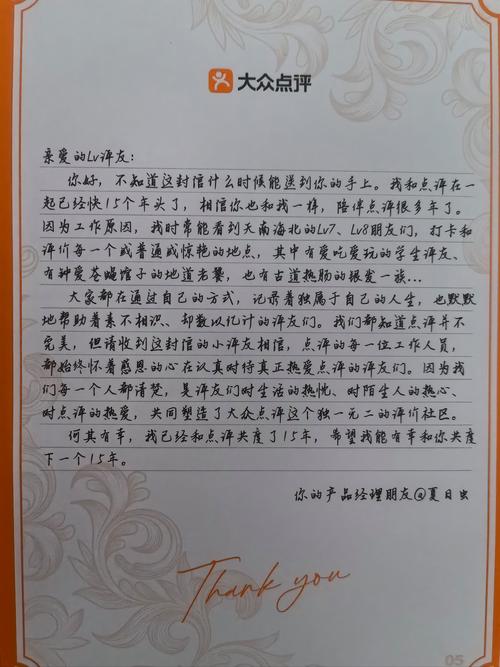 大众点评
亲爱的Lv评友：
你好，不知道这封信什么时候能送到你的手上。我和点评在一
起已经快15个年头了，相信你也和我一样，陪伴点评很多年了。
因为工作原因，我时常能看到天南海北的Lv7、Lv8朋友们，打卡和
评价每一个或普通或惊艳的地点，其中有爱吃爱玩的学生评友、
有钟爱苍蝇馆子的地道老饕，也有古道热肠的银发一族…
大家都在通过自己的方式，记录着独属于自己的人生，也默默
地帮助着素不相识、却数以亿计的评友们。我们都知道点评并不
完美，但请收到这封信的小评友相信，点评的每一位工作人员，
都始终怀着感恩的心在认真对待真正热爱点评的评友们。因为我
们每一个人都清楚，是评友们对生活的热忱、对陌生人的热心、
对点评的热爱，共同塑造了大众点评这个独一无二的评价社区。
何其有幸，我已经和点评共度了15年，希望我能有幸和你共度
下一个15年。
你的产品经理朋友@夏日虫
Thank you
05